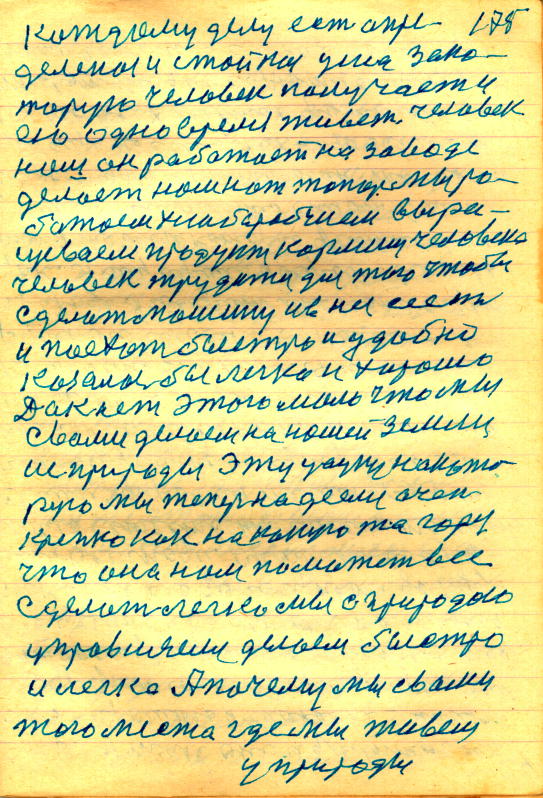 каждому делу ест опре- 178
деленая и стойкая цена зако-
торую человек получает и
ею одно время живет. человек
наш он работает на заводе
делает нам нож топор мы ра-
ботаем хлеборобчием выра-
щеваем продукт кормим человека
человек трудится для того чтобы
сделат машину ив ней сест
и поехат быстро и удобно
казалос бы легко и хорошо
Дак нет этого мало что мы
свами делаем на нашей земли
ис природы Эту науку накото-
рую мы тепер надеели очен
крепко как на какую та гору
что она нам поможет все
сделат легко мы с природаю
управимся делаем быстро
и легко А почему мы свами
того места где мы живем
у природы